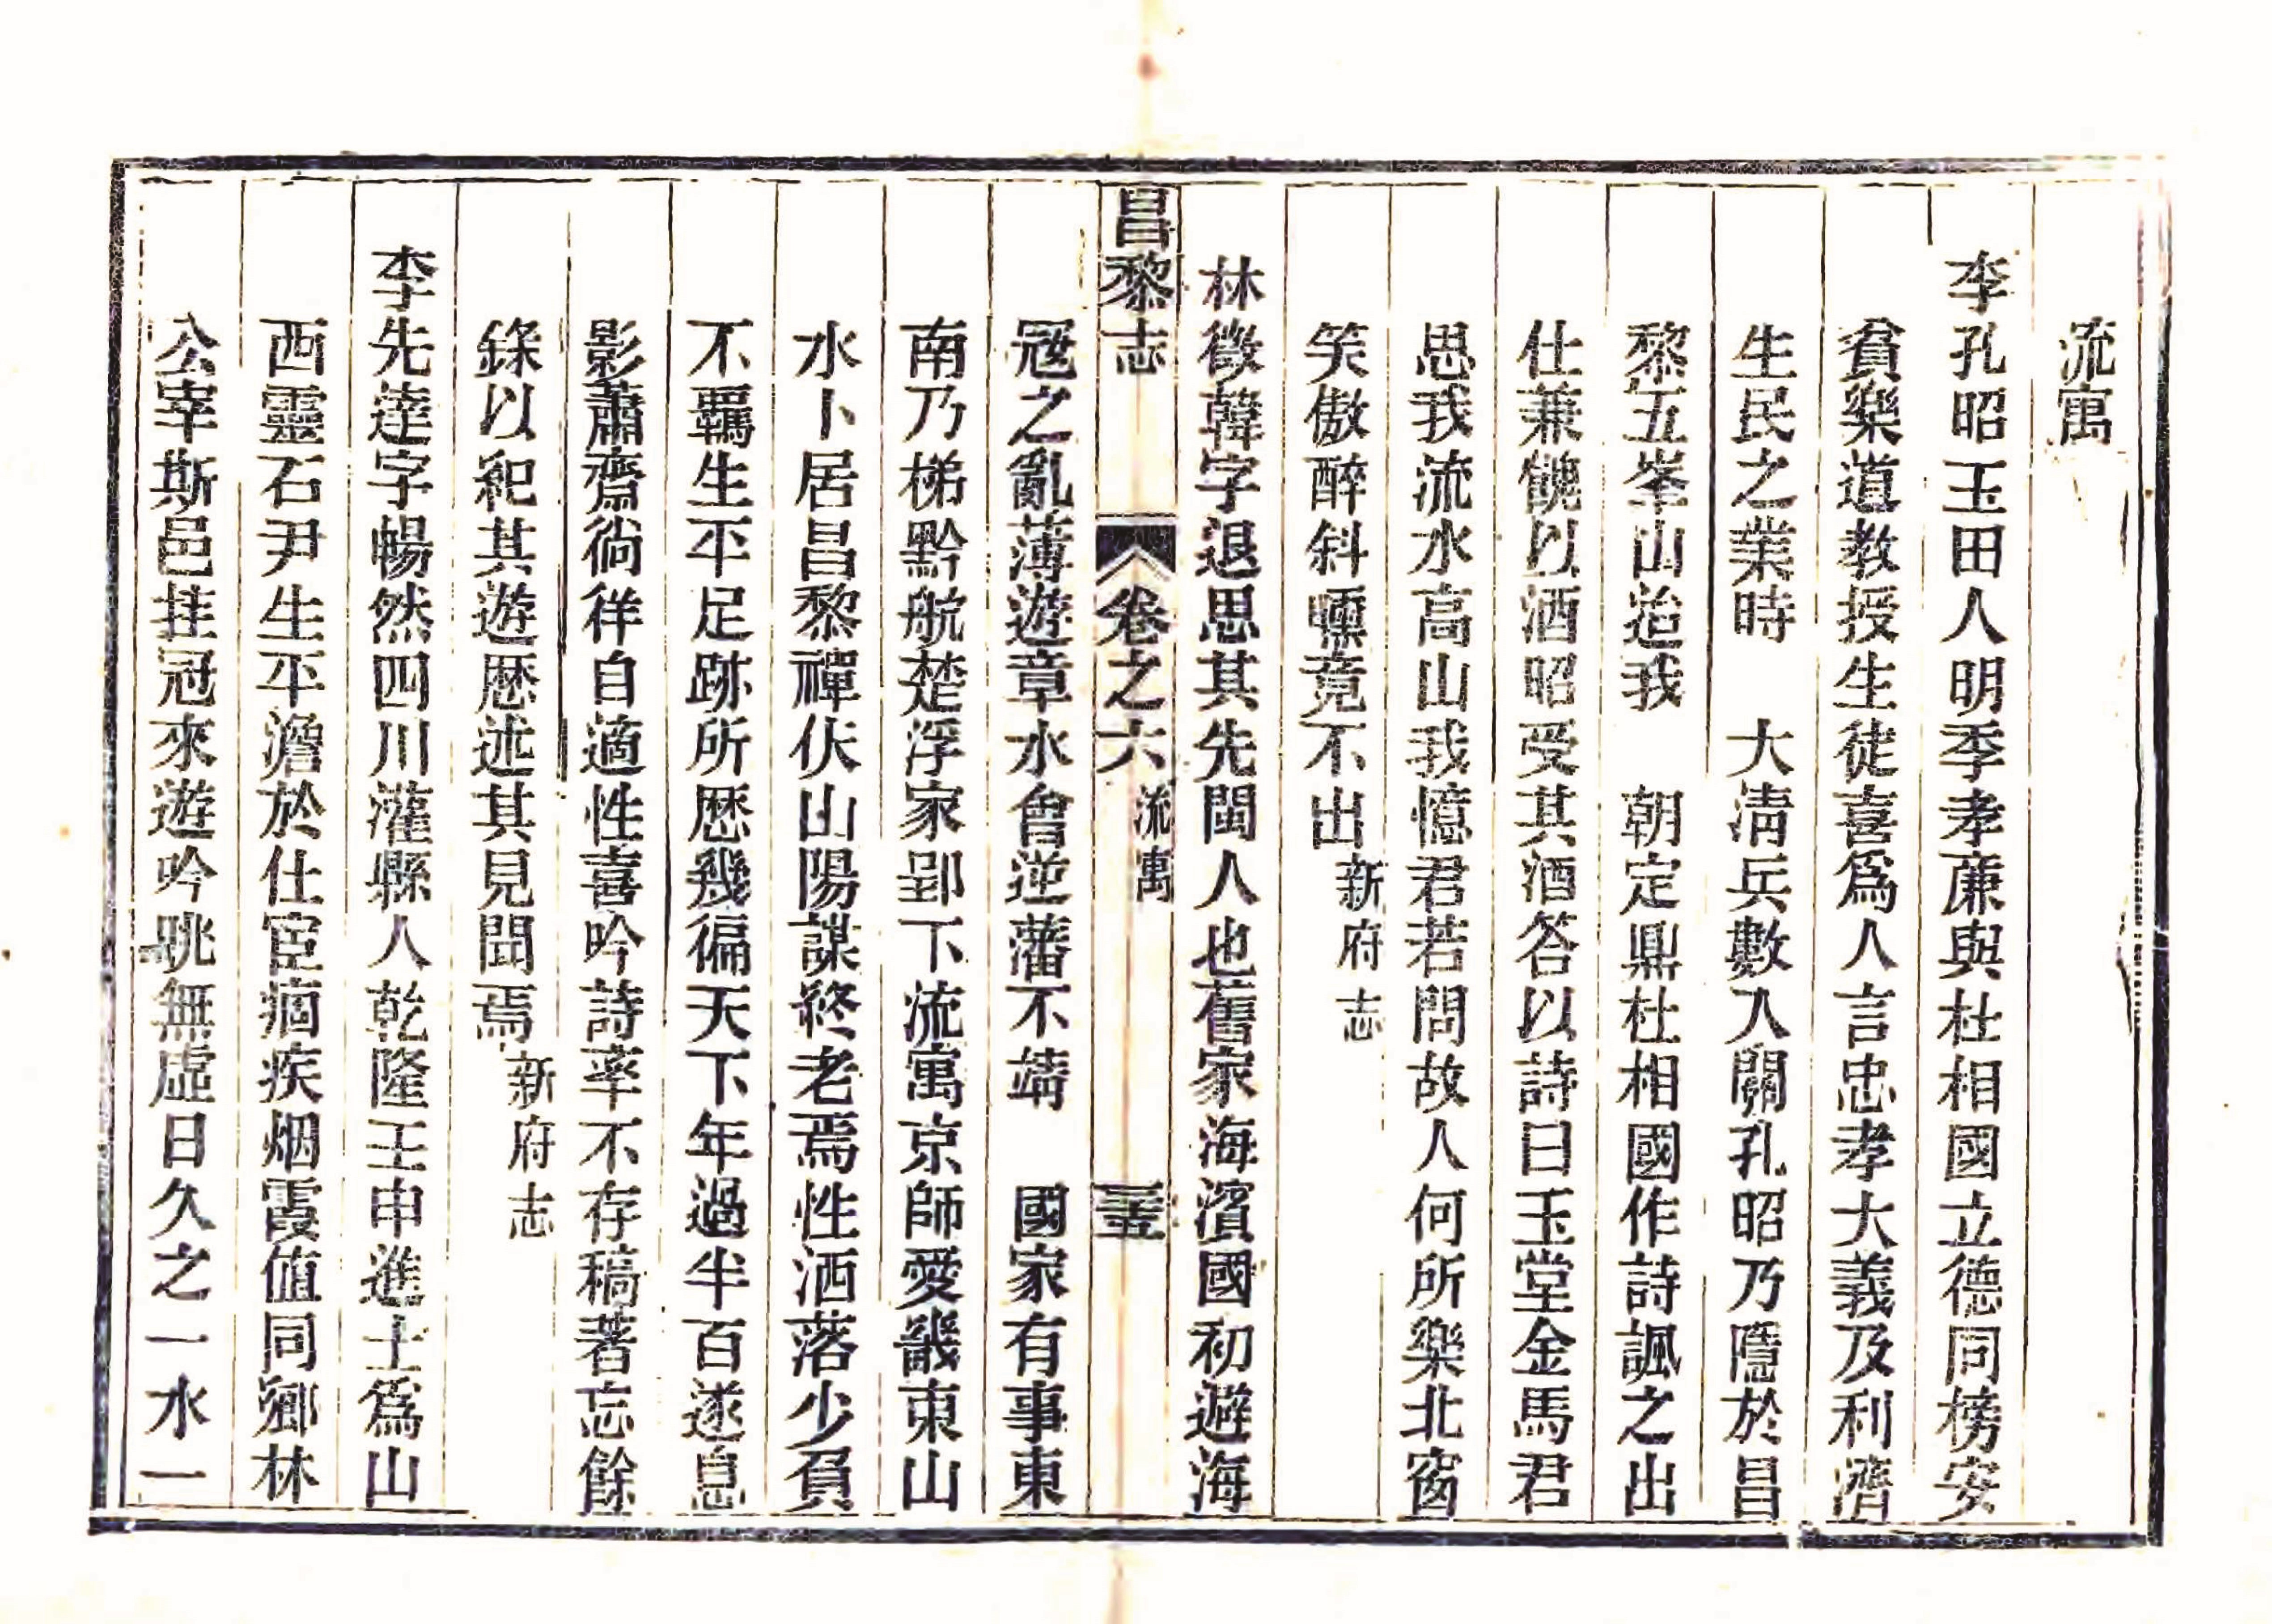 流寓
李孔昭玉田人明季孝廉與杜相國立德同榜安
貧樂道教授生徒喜爲人言忠孝大義及利濟
生民之業時 大清兵數入關孔昭乃隱於昌
黎五峯山迨我 朝定鼎杜相國作詩諷之出
仕兼餽以酒昭受其酒答以詩曰玉堂金馬君
思我流水高山我憶君若問故人何所樂北窗
笑傲醉斜曛竟不出新府志
林徵韓字退思其先閩人也舊家海濱國初避海
昌黎志 卷之六 流寓 三五
寇之亂薄遊章水會逆藩不靖 國家有事東
南乃梯黔航楚浮家郢下流寓京師愛畿東山
水卜居昌黎禪伏山陽謀終老焉性洒落少負
不羈生平足跡所歷幾徧天下年過半百遂息
影蕭齋徜徉自適性喜吟詩率不存稿著忘餘
錄以紀其遊歷述其見聞焉新府志
李先達字暢然四川灌縣人乾隆壬申進士爲山
西靈石尹生平澹於仕宦痼疾烟霞値同鄉林
公宰斯邑挂冠來遊吟眺無虛日久之一水一